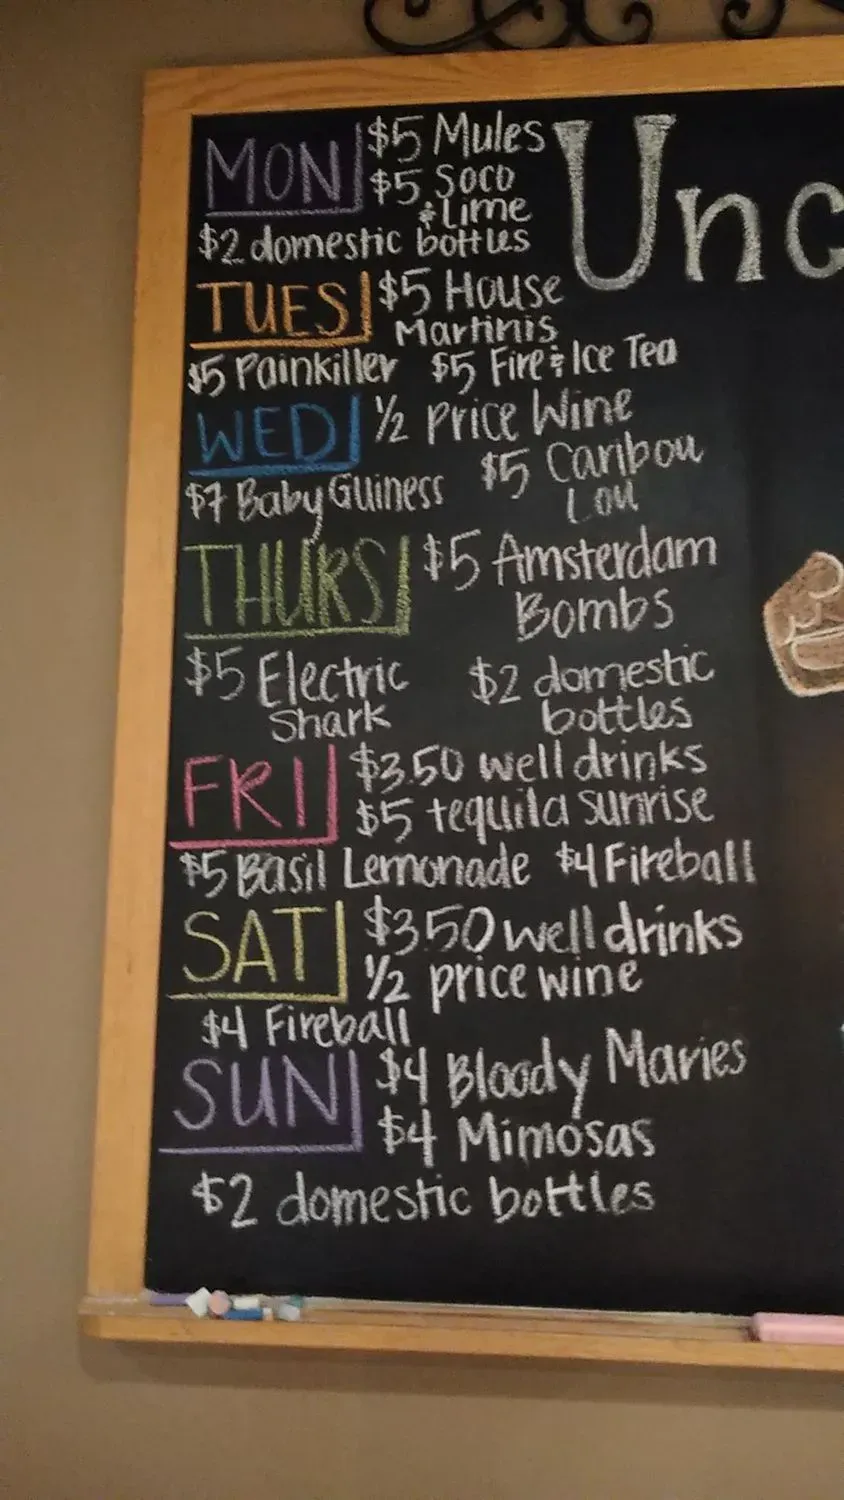 MON $5 Mules
$5 Soco
& Lime
$2 domestic bottles
Unc
TUES $5 House
Martinis
$5 Painkiller $5 Fire & Ice Tea
WED ½ price Wine
$5 Caribou
Lou
$7 Baby Guiness
THURS $5 Amsterdam
Bombs
$5 Electric
Shark
$2 domestic
bottles
FRI $3.50 well drinks
$5 tequila sunrise
$5 Basil Lemonade $4 Fireball
SAT $3.50 well drinks
½ price wine
$4 Fireball
SUN $4 Bloody Maries
$4 Mimosas
$2 domestic bottles